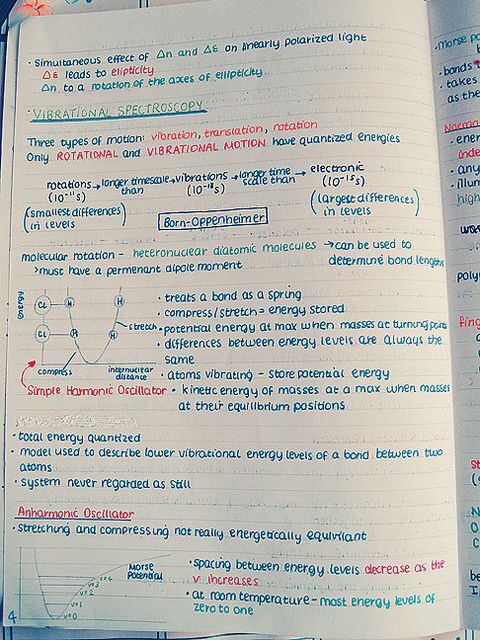 · Simultaneous effect of Δn and Δε on linearly polarized light
Δε leads to elipticity
Δn to a rotation of the axes of ellipticity
VIBRATIONAL SPECTROSCOPY
Three types of motion: vibration, translation, rotation
Only ROTATIONAL and VIBRATIONAL MOTION have quantized energies
rotations → longer timescale than → vibrations → longer time scale than → electronic
(10⁻¹¹s) (10⁻¹³s) (10⁻¹⁵s)
(smallest differences in levels) Born-Oppenheimer (largest differences in levels)
molecular rotation - heteronuclear diatomic molecules → can be used to
>must have a permenant dipole moment determine bond lengths
Energy
Cl H H
Cl H H
stretch
compress internuclear distance
Simple Harmonic Oscillator
· treats a bond as a spring
· compress/stretch = energy stored
· potential energy at max when masses at turning points
· differences between energy levels are always the
same
· atoms vibrating - store potential energy
· kinetic energy of masses at a max when masses
at their equilibrium positions
· total energy quantized
· model used to describe lower vibrational energy levels of a bond between two
atoms
· system never regarded as still
Anharmonic Oscillator
· stretching and compressing not really energetically equivilant
Morse Potential
v=4
v=3
v=2
v=1
v=0
· spacing between energy levels decrease as the
v increases
· at room temperature - most energy levels of
zero to one
4
· morse po
· bonds
· takes
as the
Norma
· ener
inde
· any
· illum
high
polyr
fing